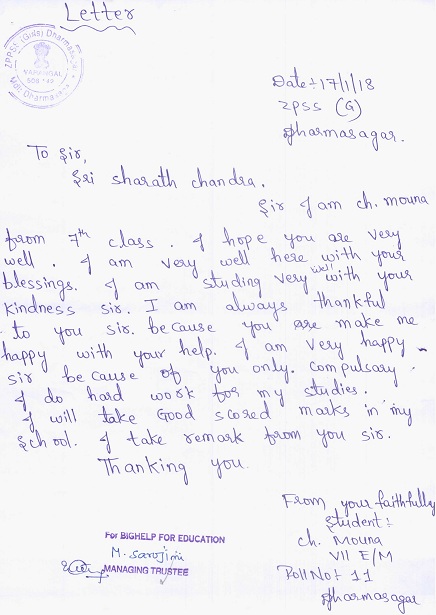 Letter
ZPPSS (Girls) Dharmasagar
WARANGAL
506 142
Date:- 17/1/18
ZPSS (G)
Dharmasagar.
To Sir,
Sri sharath chandra.
Sir I am ch. mouna
from 7th class. I hope you are very
well. I am very well here with your
blessings. I am studing very well with your
kindness sir. I am always thankful
to you sir. because you are make me
happy with your help. I am very happy
sir because of you only. compulsary.
I do hard work for my studies.
I will take Good scored marks in my
school. I take remark from you sir.
Thanking you.
From your faithfully
Student:
ch. Mouna
VII E/M
Roll No:- 11
Dharmasagar
For BIGHELP FOR EDUCATION
M. Sarojini
MANAGING TRUSTEE